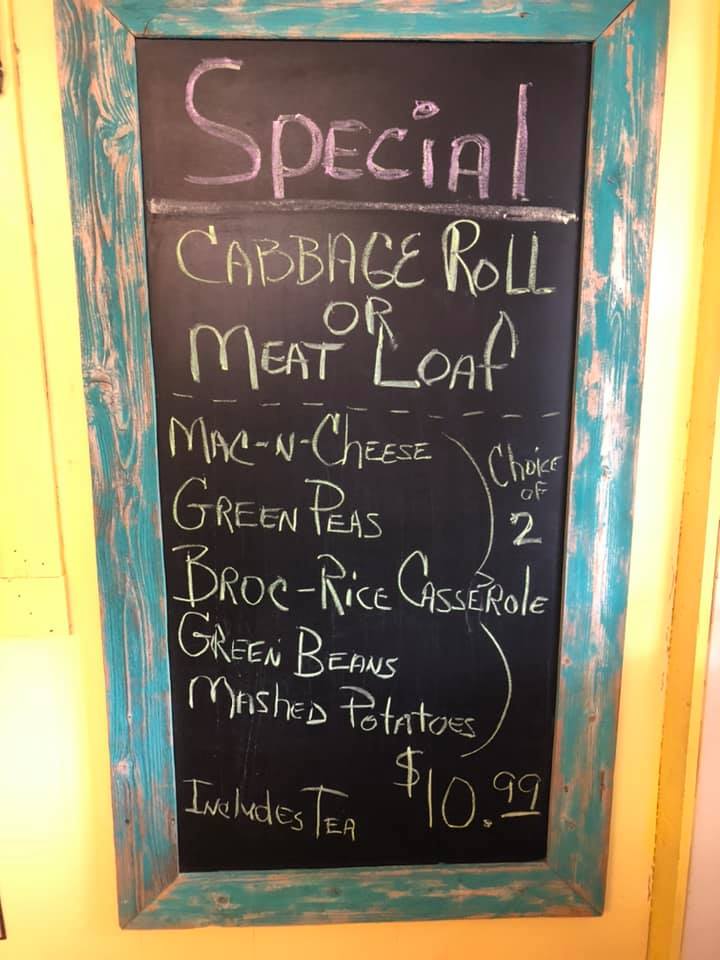 Special
CABBAGE ROLL
OR
MEAT LOAF
MAC-N-CHEESE
Choice
OF
2
GREEN PEAS
BROC-RICE CASSEROLE
GREEN BEANS
MASHED POTATOES
$10.99
INCLUDES TEA